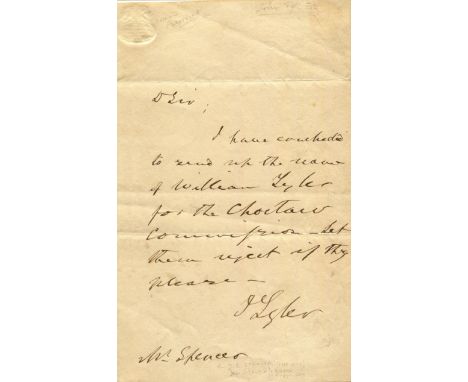 D Sir,
I have concluded
to send up the name
of William Tyler
for the Choctaw
commission — Let
them reject if thy
please —
J Tyler
Mr Spencer